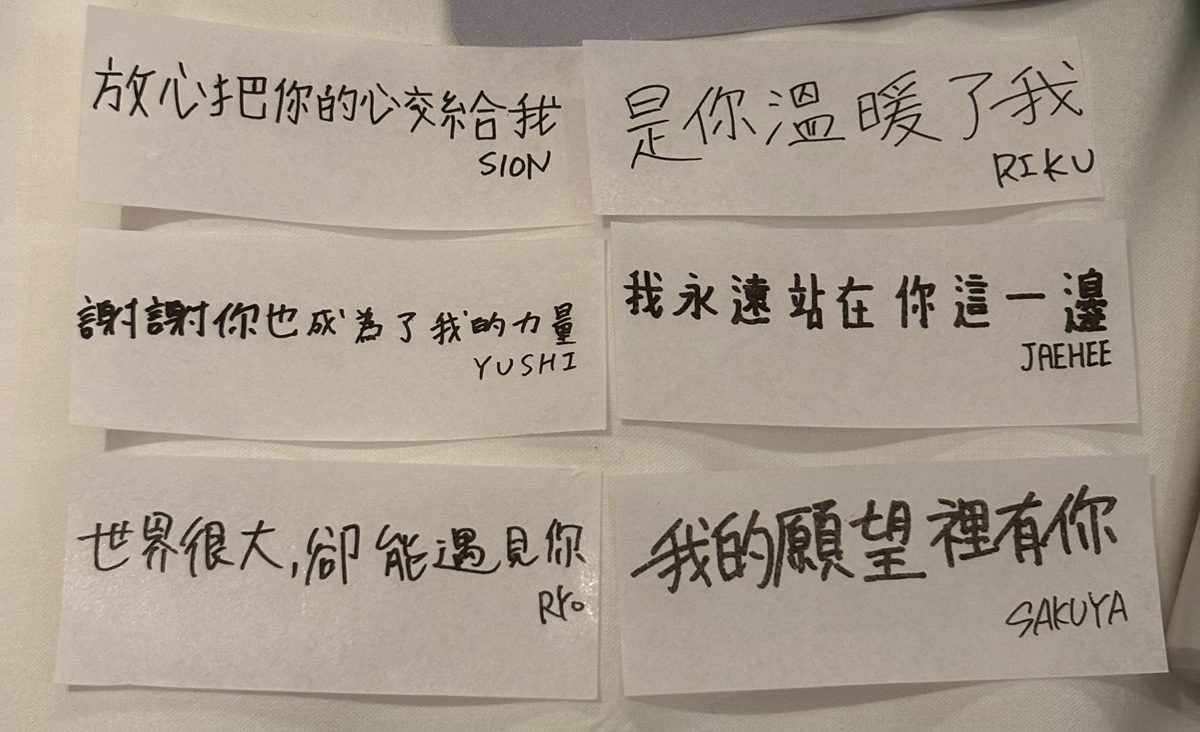 放心把你的心交給我
SION
是你溫暖了我
RIKU
謝謝你也成為了我的力量
YUSHI
我永遠站在你這一邊
JAEHEE
世界很大,卻能遇見你
RYo
我的願望裡有你
SAKUYA